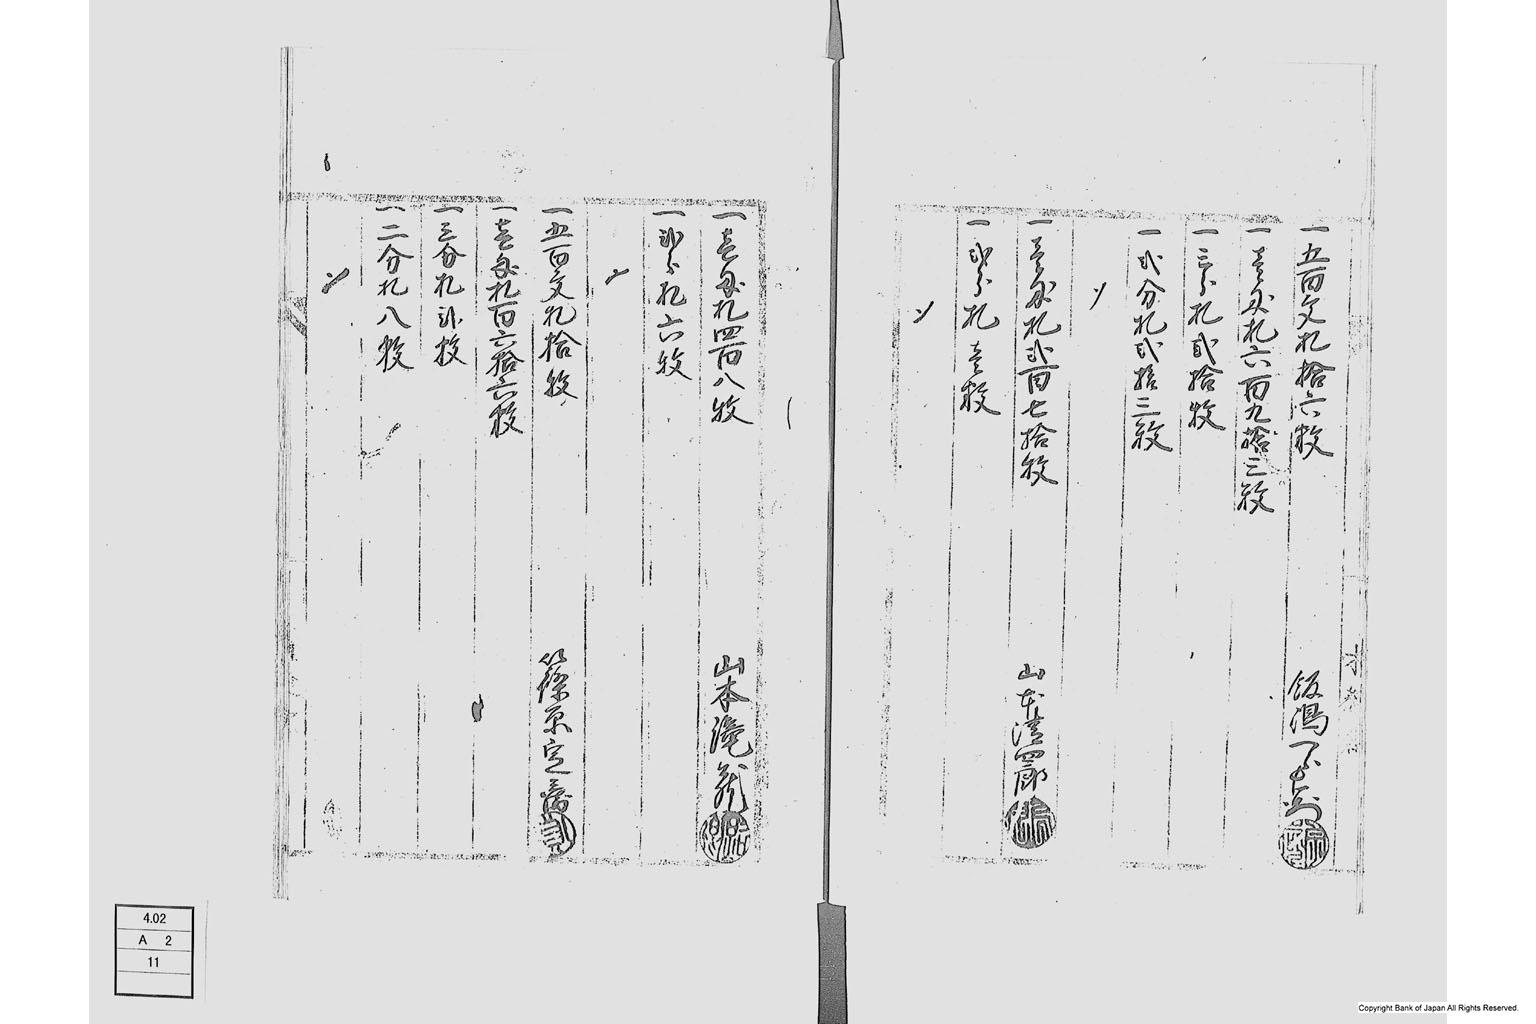 一五百文札拾六枚
一壱匁札六百九拾三枚
一三分札弐拾枚
一弐分札弐拾三枚
一壱匁札弐百七拾枚
山本清四郎
一弐分札壱枚
一壱匁札四百八枚
山本滝蔵
一弐分札六枚
一五百文札拾枚
篠原定
一壱匁札百六拾六枚
一三分札弐枚
一二分札八枚
4.02
A 2
11
Copyright Bank of Japan All Rights Reserved.